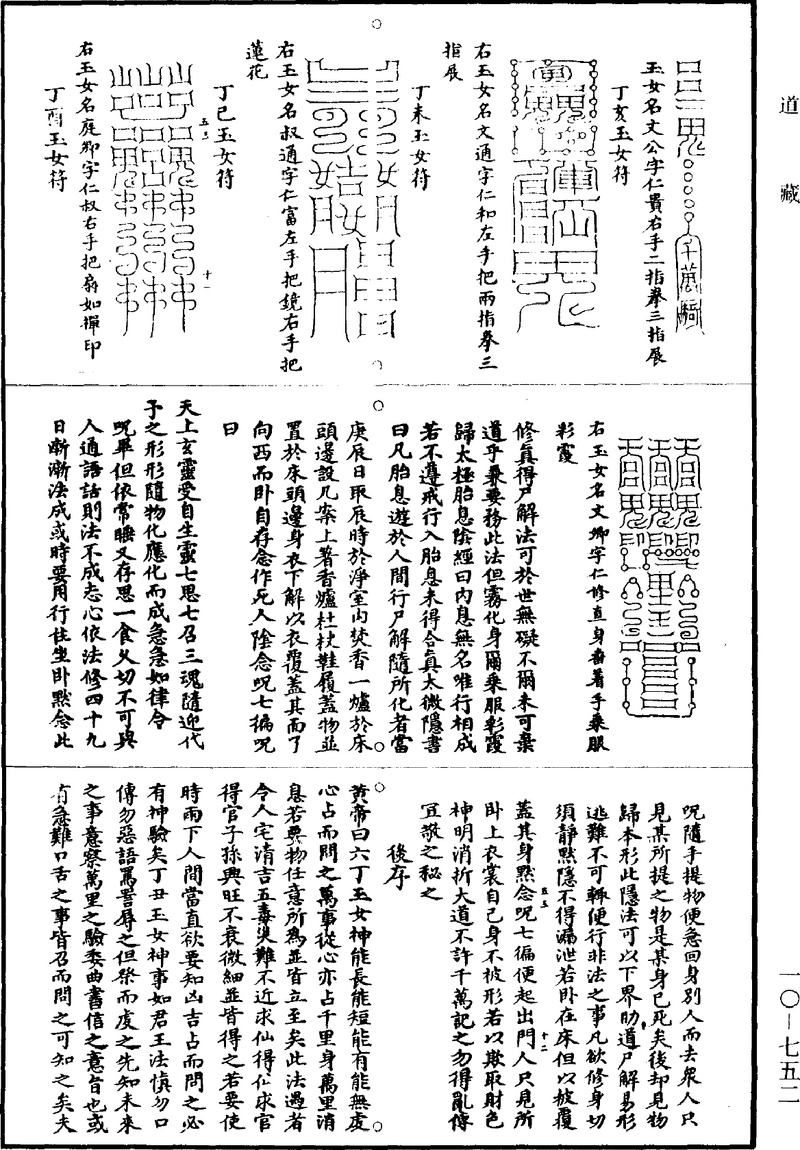 道藏
玉女名文公字仁貴右手二指拳三指展
丁亥玉女符
右玉女名文通字仁和左手把兩指拳三
指展
丁未玉女符
右玉女名叔通字仁富左手把鏡右手把
蓮花
丁巳玉女符
右玉女名庭卿字仁叔右手把扇如禪印
丁酉玉女符
右玉女名文卿字仁修直身番著手乘服
彩霞
修真得尸解法可於世無礙不爾未可棄
道乎最要務此法但霧化身爾乘服彩霞
歸太極胎息陰經曰內息無名唯行相成
若不遵戒行入胎息未得合真太微隱書
曰凡胎息遊於人間行尸解隨所化者當
庚辰日取辰時於淨室內焚香一爐於床
頭邊設几案上著香爐柱杖鞋履蓋物並
置於床頭邊身衣下解以衣覆蓋其面了
向西而臥自存念作死人陰念呪七徧呪
曰
天上玄靈受自生靈七思七召三魂隨迎代
予之形形隨物化應化而成急急如律令
呪畢但依常睡又存思一食久切不可與
人通語話則法不成志心依法修四十九
日漸漸法成或時要用行住坐臥默念此
呪隨手提物便急回身別人而去眾人只
見某所提之物是某身已死矣後却見物
歸本形此隱法可以下界助道尸解易形
逃難不可輒便行非法之事凡欲修身切
須靜默隱不得漏泄若臥在床但以被覆
蓋其身默念呪七徧便起出門人只見所
臥上衣裳自己身不被形若以欺取財色
神明消折大道不許千萬記之勿得亂傳
宜敬之秘之
後序
黃帝曰六丁玉女神能長能短能有能無虔
心占而問之萬事從心亦占千里身萬里消
息若要物任意所為並皆立至矣此法遇者
令人宅清吉五毒災難不近求仙得仙求官
得官子孫興旺不衰微細並皆得之若要使
時雨下人間當直欲要知凶吉占而問之必
有神驗矣丁丑玉女神事如君王法慎勿口
傳勿惡語罵詈辱之但祭而虔之先知未來
之事意察萬里之驗委曲書信之意旨也或
有急難口舌之事皆召而問之可知之矣夫
一〇—七五二